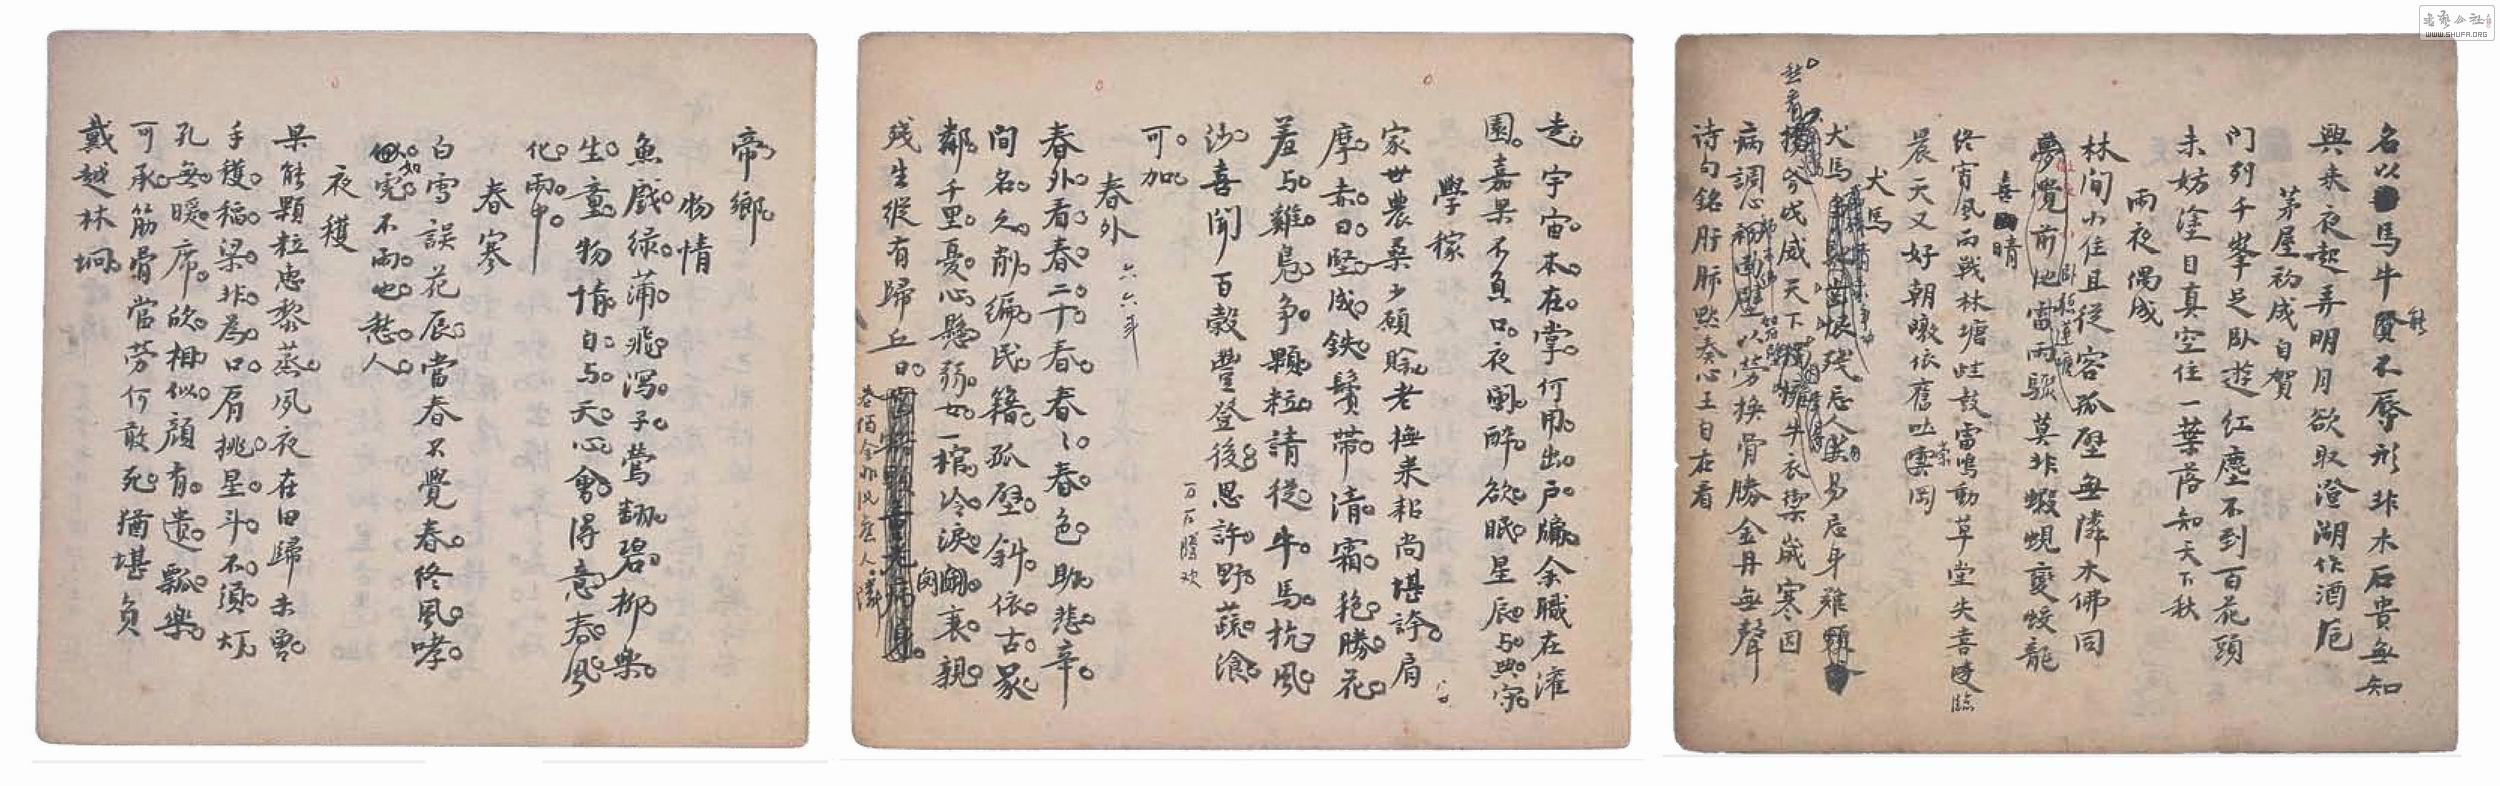 名以馬牛能賢不辱形非木石貴無知
興來夜起弄明月欲取澄湖作酒卮
茅屋初成自賀
門列千峯足臥遊紅塵不到百花頭
未妨塗目真空住一葉落知天下秋
雨夜偶成
林間小住且從容孤壁無隣木佛同
夢覺前池雷雨驟莫非蝦蜆變蛟龍
臥聽蓮塘
喜晴
終宵風雨戰林塘蛙鼓雷鳴動草堂失喜臨
晨天又好朝暾依舊吐雲岡
犬馬
犬馬殘忘人易忘身雖
天下牛衣禦歲寒因
病調心以勞換骨勝金丹無聲
诗句銘肝肺默奏心王自在看
走宇宙本在掌何用出戶牖余職在灌
園嘉果不負口夜闌醉欲眠星辰与點字
學稼
家世農桑少願賒老撫耒耜尚堪誇肩
摩赤日堅成鉄鬢帶清霜艳勝花
羞与雞鳧争顆粒請從牛馬抗風
沙喜聞百穀豐登後思許野蔬飡
可加
春外
六六年
春外看春二十春春春色助悲辛
間名久削编民籍孤壁斜依古冢
鄰千里憂心懸弱女一棺冷淚衷親
残生縱有歸丘日
帝鄉
物情
魚戲绿蒲飛瀉子鶯翻碧柳樂
生童物情自与天心會得意春風
化雨中
春寒
白雪誤花辰當春不覺春終風哮
如虎不雨也愁人
夜穫
果能顆粒惠黎蒸夙夜在田歸未曾
手穫稻梁非為口肩挑星斗不須灯
孔無暖席欣相似顔有遗瓢樂
可承筋骨當劳何敢死猶堪負
戴越林坰
WWW.SHUFA.ORG